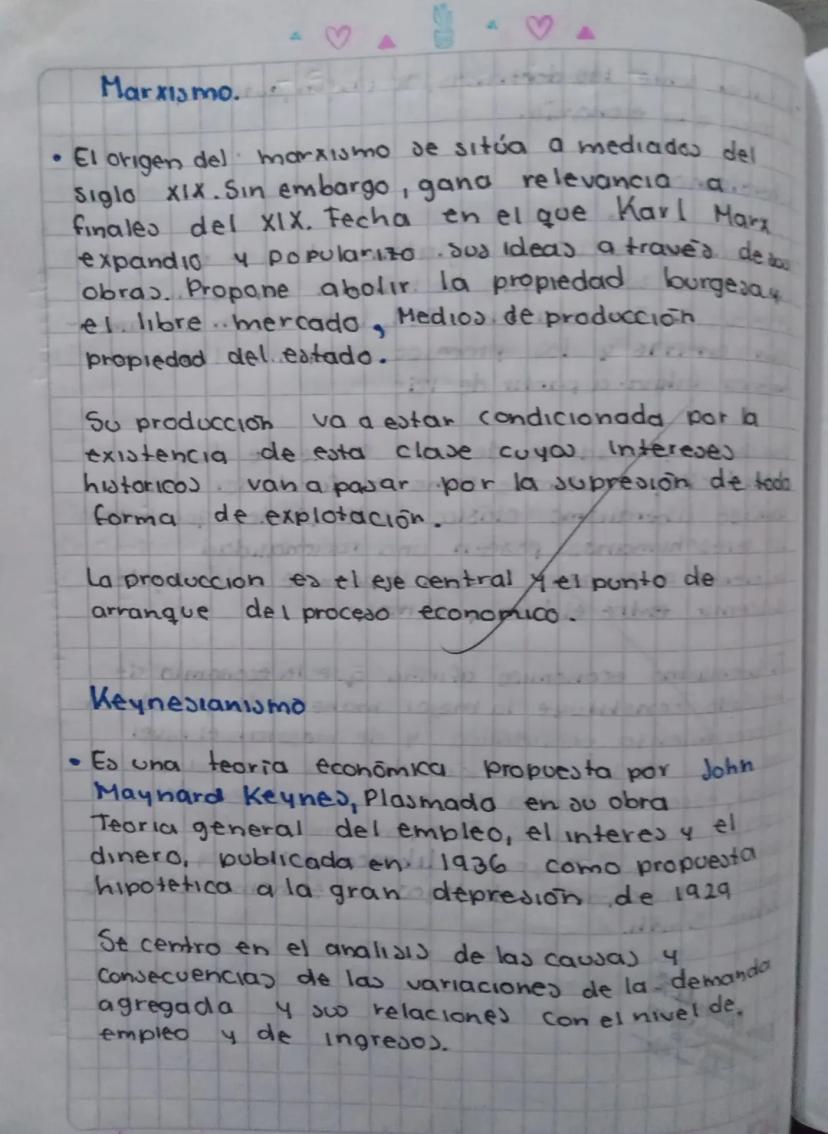 Marxismo.
• El origen del marxismo se sitúa a mediados del
siglo XIX. Sin embargo, gana relevancia a
finales del XIX. Fecha en el que Karl Marx
expandio y popularizo sus ideas a través de sus
obras. Propone abolir la propiedad burgesa y
el libre mercado, Medios de producción
propiedad del estado.
Su producción va a estar condicionada por la
existencia de esta clase cuyos intereses
historicos van a pasar por la supresión de toda
forma de explotación.
La produccion es el eje central y el punto de
arranque del proceso economico.
Keynesianismo
• Es una teoria económica propuesta por John
Maynard Keynes, Plasmada en su obra
Teoria general del empleo, el interes y el
dinero, publicada en 1936 como propuesta
hipotetica a la gran depresión de 1929
Se centro en el analisis de las causas y
consecuencias de las variaciones de la demanda
agregada y sus relaciones con el nivel de.
empleo y de ingresos.